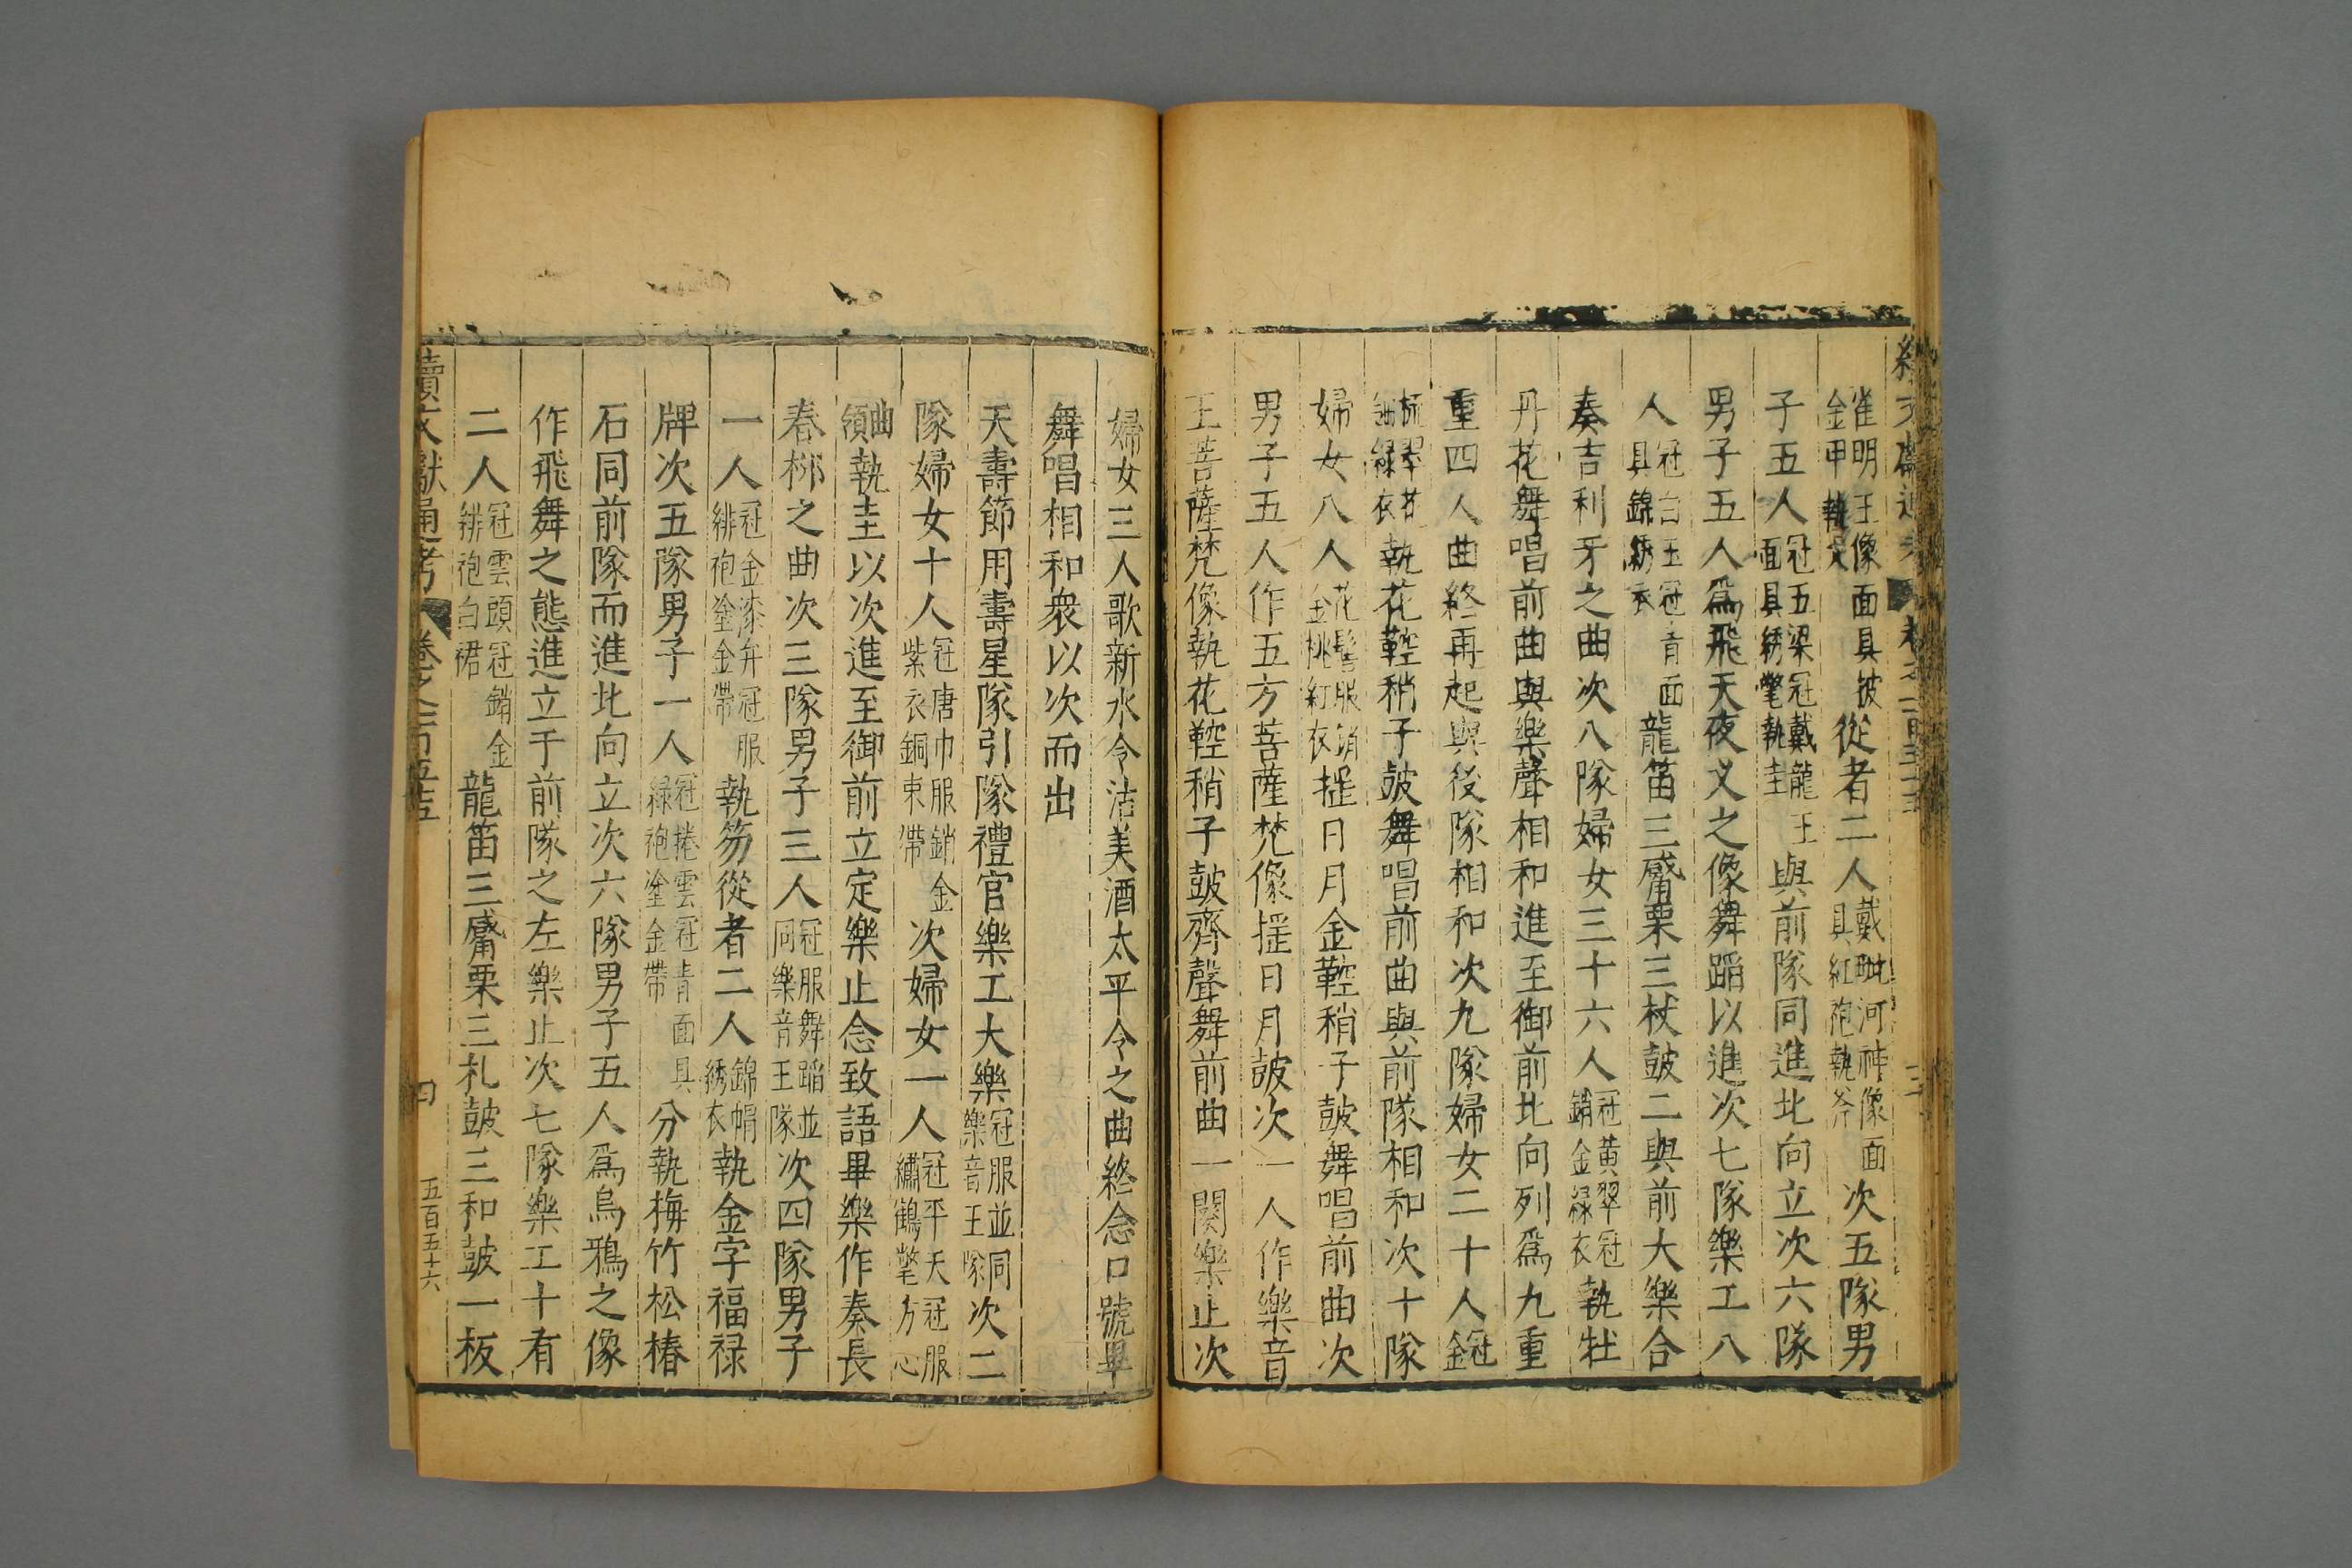 雀明王像面具披金甲執定從者二人戴毗河神像面具紅袍執斧次五隊男
子五人冠五梁冠戴龍王面具綉氅執圭與前隊同進北向立次六隊
男子五人爲飛天夜叉之像舞蹈以進次七隊樂工八
人冠白玉冠青面具錦綉衣龍笛三觱栗三杖鼓二與前大樂合
奏吉利牙之曲次八隊婦女三十六人冠黃翠冠銷金綠衣執牡
丹花舞唱前曲與樂聲相和進至御前北向列爲九重
重四人曲終再起與後隊相和次九隊婦女二十人冠金
梳翠花鈿綠衣執花鞚稍子鼓舞唱前曲與前隊相和次十隊
婦女八人花髻服銷金桃紅衣搖日月金鞚稍子鼓舞唱前曲次
男子五人作五方菩薩梵像搖日月鼓次一人作樂音
王菩薩梵像執花鞚稍子鼓齊聲舞前曲一闋樂止次
婦女三人歌新水令沽美酒太平令之曲終念口號畢
舞唱相和衆以次而出
天壽節用壽星隊引隊禮官樂工大樂冠服並同樂音王隊次二
隊婦女十人冠唐巾服銷金紫衣銅束帶次婦女一人冠平天冠服繡鶴氅方心
曲領執圭以次進至御前立定樂止念致語畢樂作奏長
春柳之曲次三隊男子三人冠服舞蹈並同樂音王隊次四隊男子
一人冠金漆弁冠服緋袍塗金帶執笏從者二人錦帽綉衣執金字福禄
牌次五隊男子一人冠捲雲冠青面具緑袍塗金帶分執梅竹松椿
石同前隊而進北向立次六隊男子五人爲烏鴉之像
作飛舞之態進立于前隊之左樂止次七隊樂工十有
二人冠雲頭冠銷金緋袍白裙龍笛三觱栗三札鼓三和鼓一板
續文獻通考
五百五十六